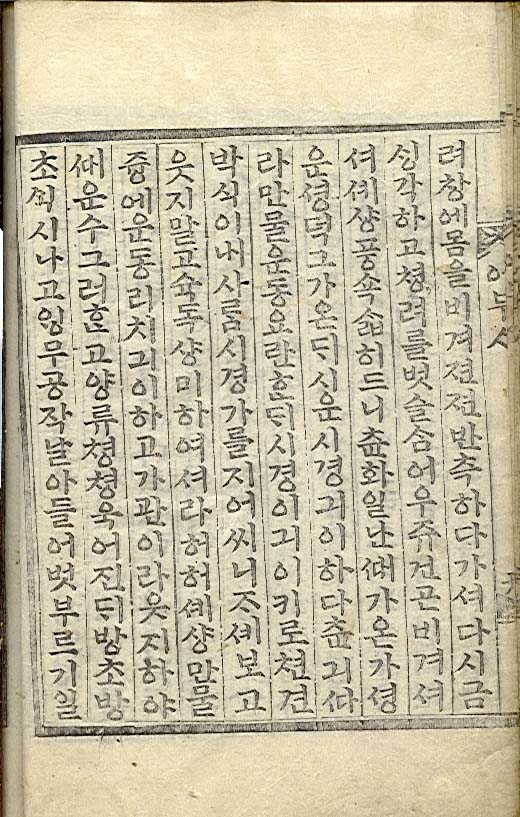 려창에몸을비겨젼젼반측하다가셔다시금
싱각하고쳥려를벗슬숨어우쥬건곤비겨셔
셔셰샹풍쇽숣히드니츈화일난ᄯᅢ가온가셩
운셩덕그가온ᄃᆡ신운시경긔이하다츈긔ᄯᅡ
라만물운동요란ᄒᆞᆫᄃᆡ시경이긔이키로쳔견
박식이내사ᄅᆞᆷ시경가를지어씨니ᄌᆞ셰보고
웃지말고슉독샹미하여셔라허허셰샹만물
즁에운동리치긔이하고가관이라웃지하야
ᄯᅢ운수그러ᄒᆞᆫ고양류쳥쳥욱어진ᄃᆡ방초방
초씩시나고잉무공작날아들어벗부르기일